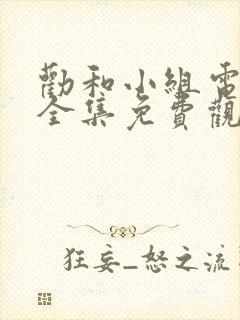 勸和小組電
全集免費觀
狂妄_怒之流